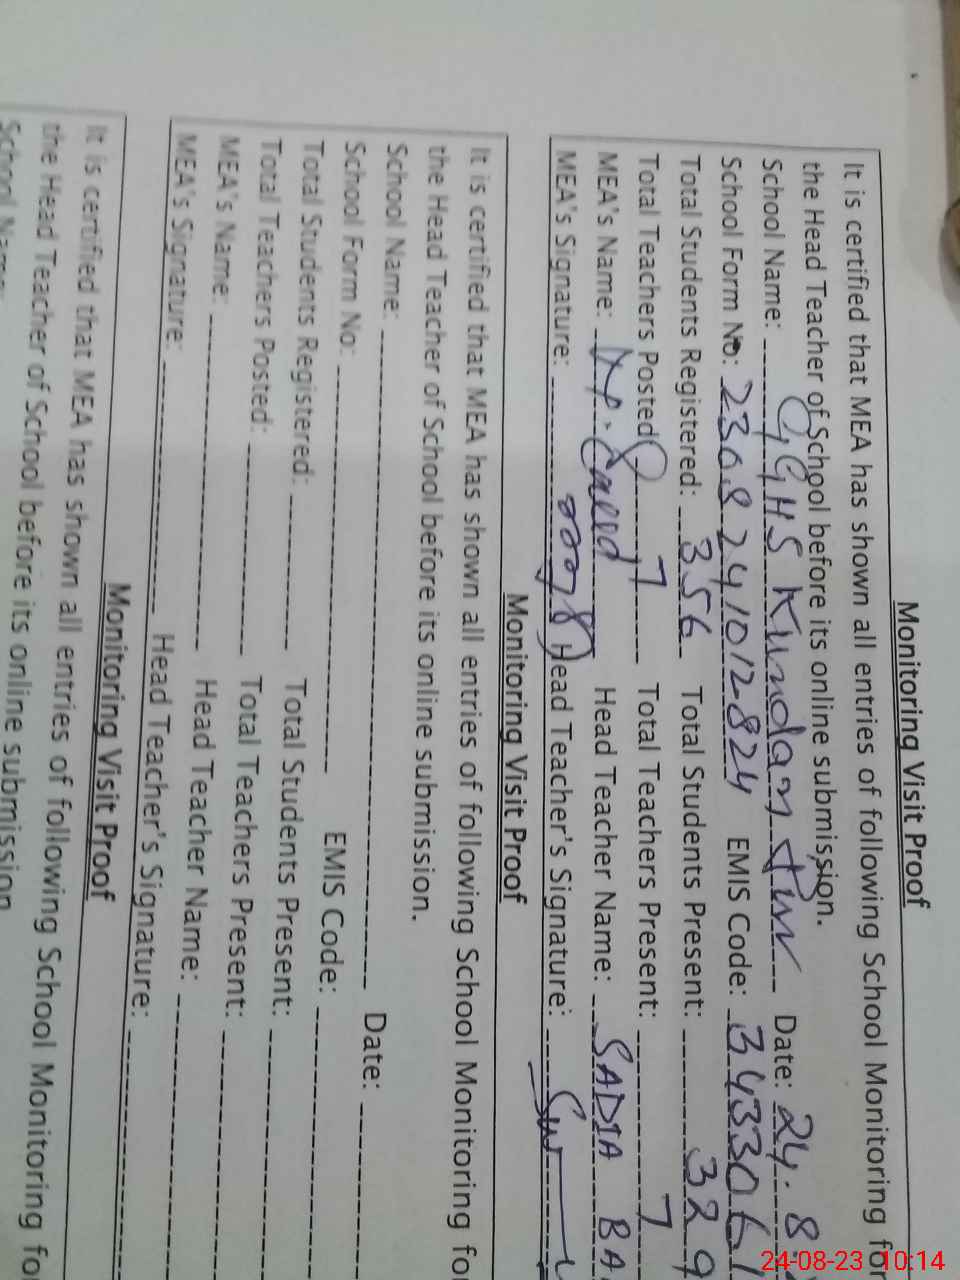 Monitoring Visit Proof
It is certified that MEA has shown all entries of following School Monitoring for
the Head Teacher of School before its online submission.
School Name: GGHS Kundan Pur Date: 24.8
School Form No: 2308241012824 EMIS Code: 3433061
Total Students Registered: 356 Total Students Present: 329
Total Teachers Posted 7 Total Teachers Present: 7
MEA's Name: Head Teacher Name: SADIA BA
MEA's Signature: Head Teacher's Signature:
Monitoring Visit Proof
It is certified that MEA has shown all entries of following School Monitoring for
the Head Teacher of School before its online submission.
School Name: Date:
School Form No: EMIS Code:
Total Students Registered: Total Students Present:
Total Teachers Posted: Total Teachers Present:
MEA's Name: Head Teacher Name:
MEA's Signature: Head Teacher's Signature:
Monitoring Visit Proof
It is certified that MEA has shown all entries of following School Monitoring for
the Head Teacher of School before its online submission
School Name:
24-08-23 10:14